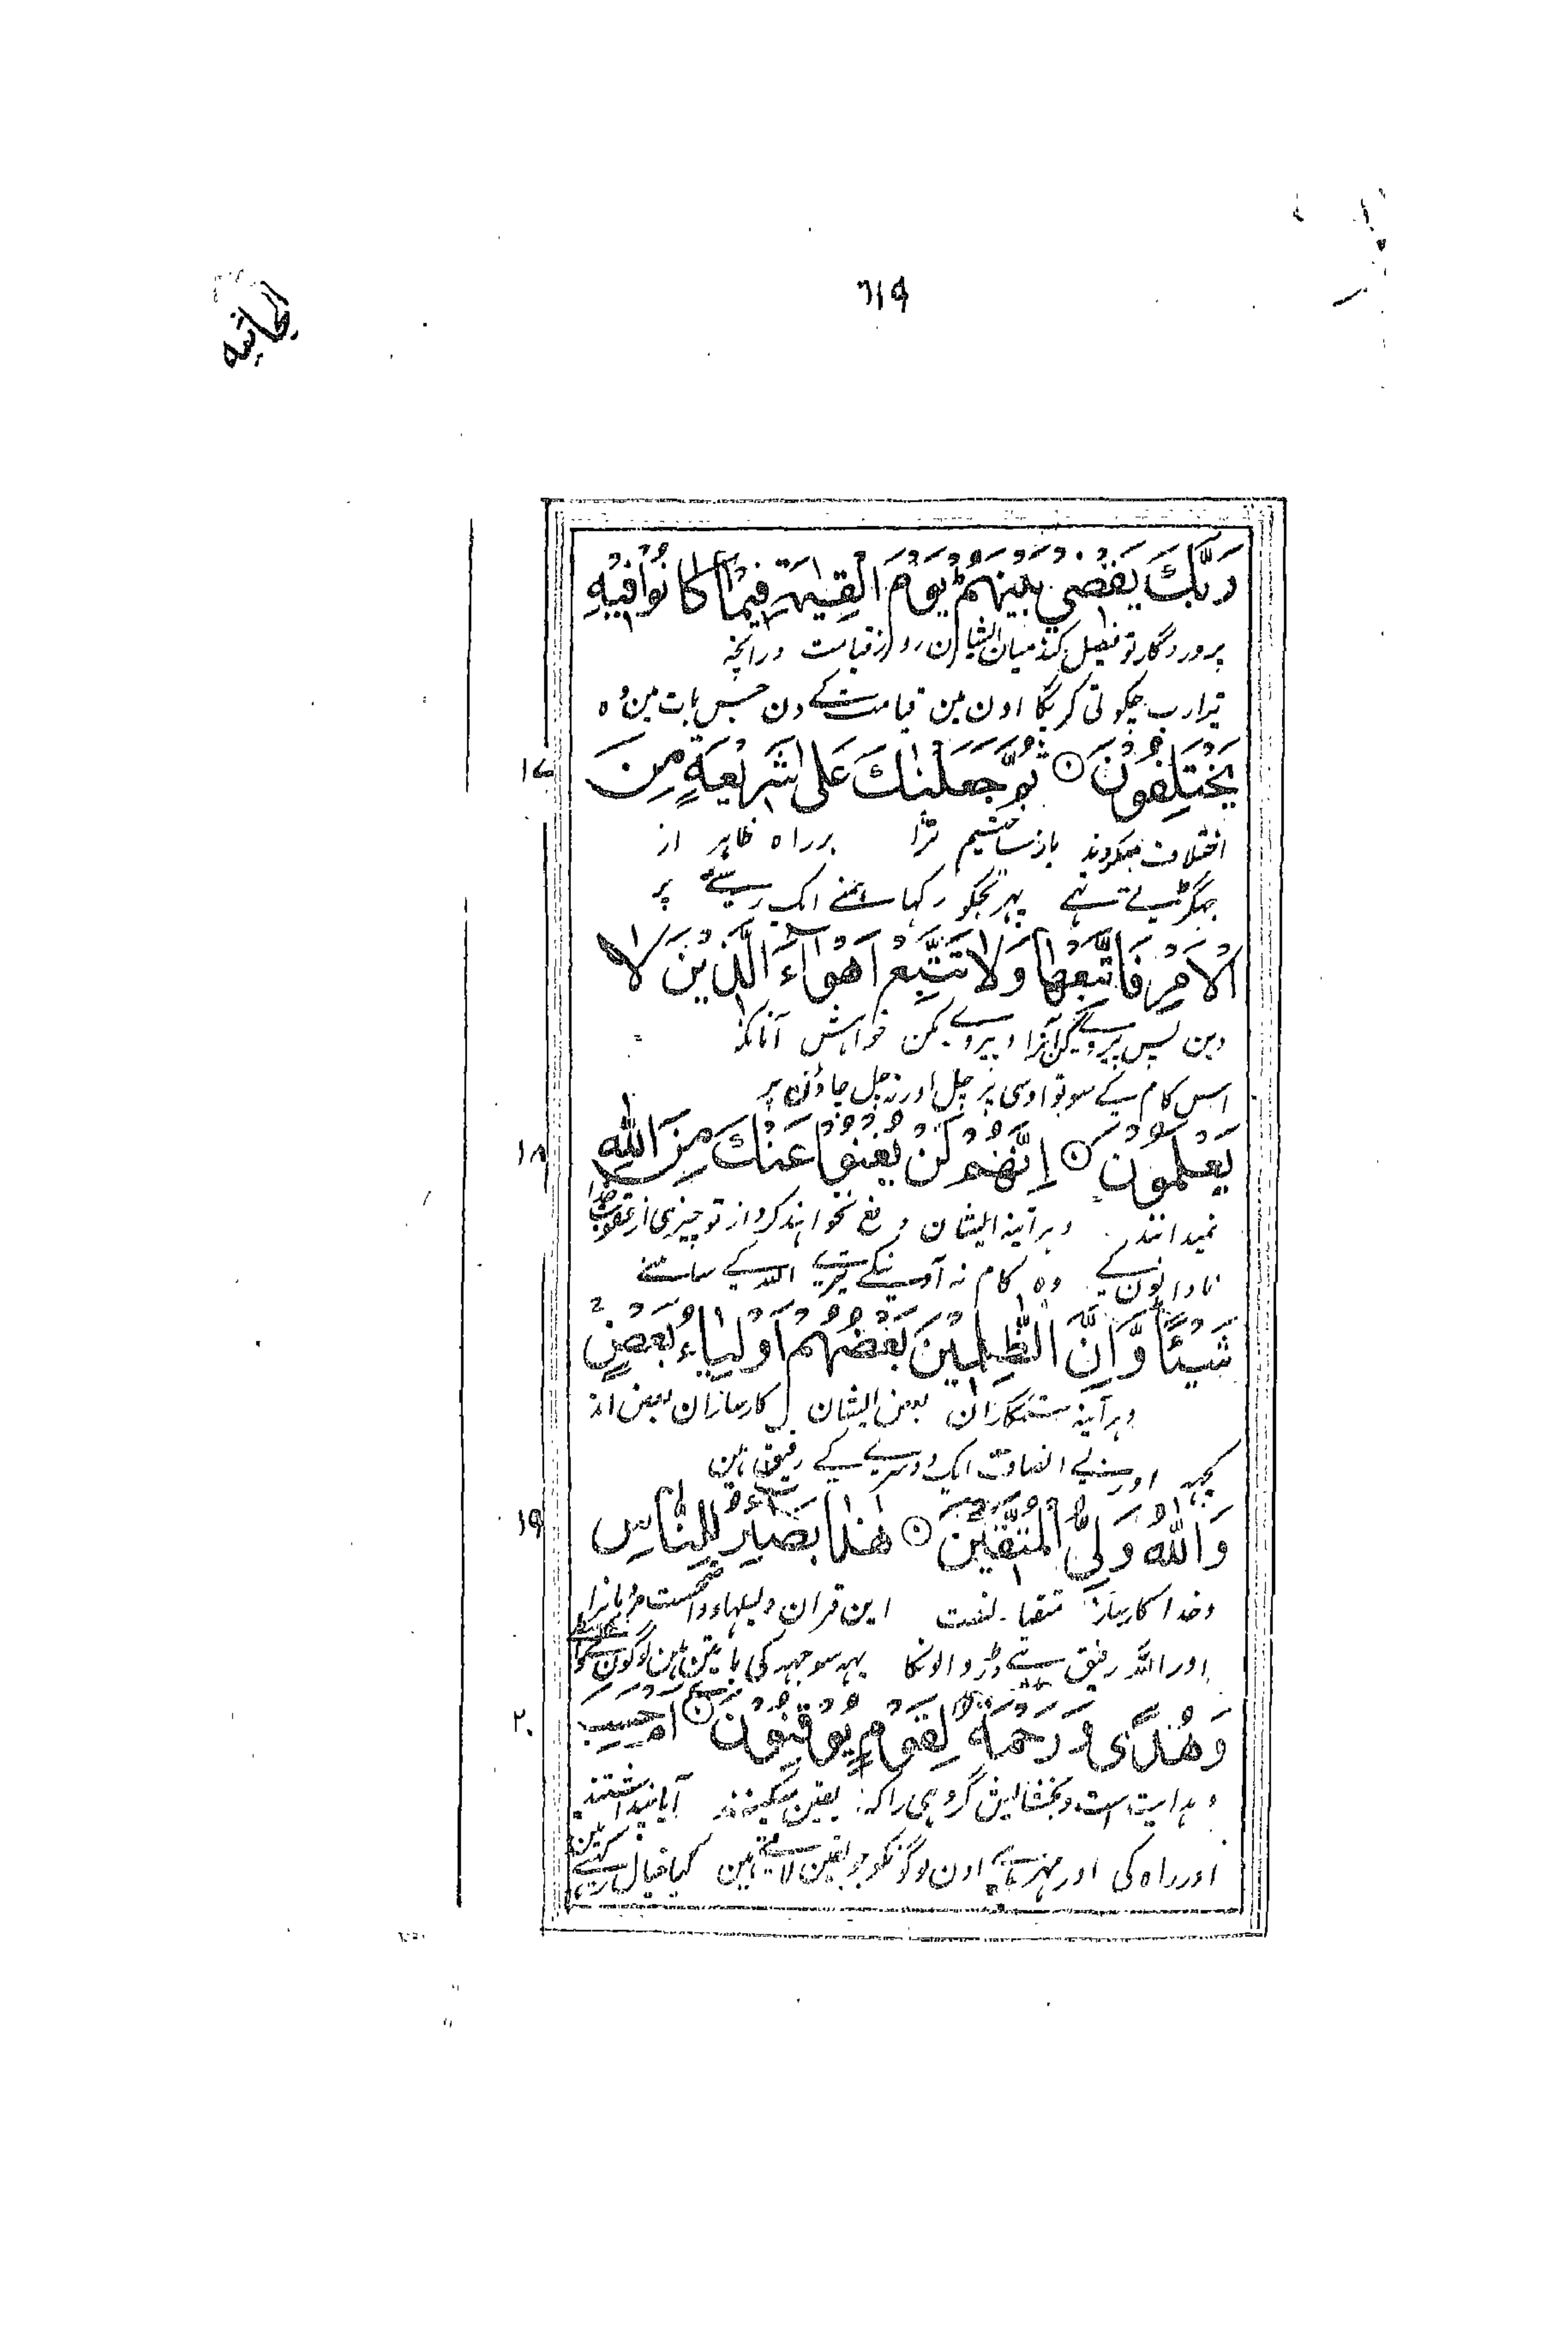 ۶۱۹
الجاثیه
رَبَّكَ يَقْضِي بَيْنَهُمْ يَوْمَ الْقِيٰمَةِ فِيْمَا كَانُوْا فِيْهِ
پروردگار تو فیصل کند میان ایشان روز قیامت درانچه
تیرا رب چکوتی کریگا اون مین قیامت کے دن جس بات مین وہ
يَخْتَلِفُوْنَ ثُمَّ جَعَلْنٰكَ عَلٰى شَرِيْعَةٍ مِنَ
۱۷
اختلاف میکردند باز ساختیم ترا برراه ظاہر از
جهگڑتے تہے پہر تجکو رکہا ہمنے ایک رستے پر
الْاَمْرِ فَاتَّبِعْهَا وَلَا تَتَّبِعْ اَهْوَآءَ الَّذِيْنَ لَا
دین پس پیروے کن آنرا و پیروے مکن خواہش آنانکہ
اس کام کے سو تو اوسی پر چل اور نہ چل چاؤن پر
يَعْلَمُوْنَ اِنَّهُمْ لَنْ يُّغْنُوْا عَنْكَ مِنَ اللّٰهِ
۱۸
نمیدانند ہر آئینہ ایشان دفع نخواہند کرد از تو چیزی از عقوبت خدا
نادانون کے وہ کام نہ آوینگے تیرے اللہ کے سامنے
شَيْئًا وَّاِنَّ الظّٰلِمِيْنَ بَعْضُهُمْ اَوْلِيَآءُ بَعْضٍ
وہر آئینہ ستمکاران بعض ایشان کارسازان بعض اند
کچہہ اور بے انصاف ایک دوسرے کے رفیق ہین
وَاللّٰهُ وَلِيُّ الْمُتَّقِيْنَ هٰذَا بَصَآئِرُ لِلنَّاسِ
۱۹
وخدا کارساز متقیانست این قران دلیلہاء واضحست مردمانرا
اور اللہ رفیق ہے ڈر والونکا یہہ سوجہہ کی باتین ہین لوگون
وَهُدًى وَّرَحْمَةٌ لِّقَوْمٍ يُّوْقِنُوْنَ اَمْ حَسِبَ
۲۰
و ہدایت است و بخشایش گروہی راکہ یقین میکنند آیا پنداشتند
اور راہ کی اور مہر ہے اون لوگونکو جو یقین لاتے ہین کیا خیال رکہتے ہین